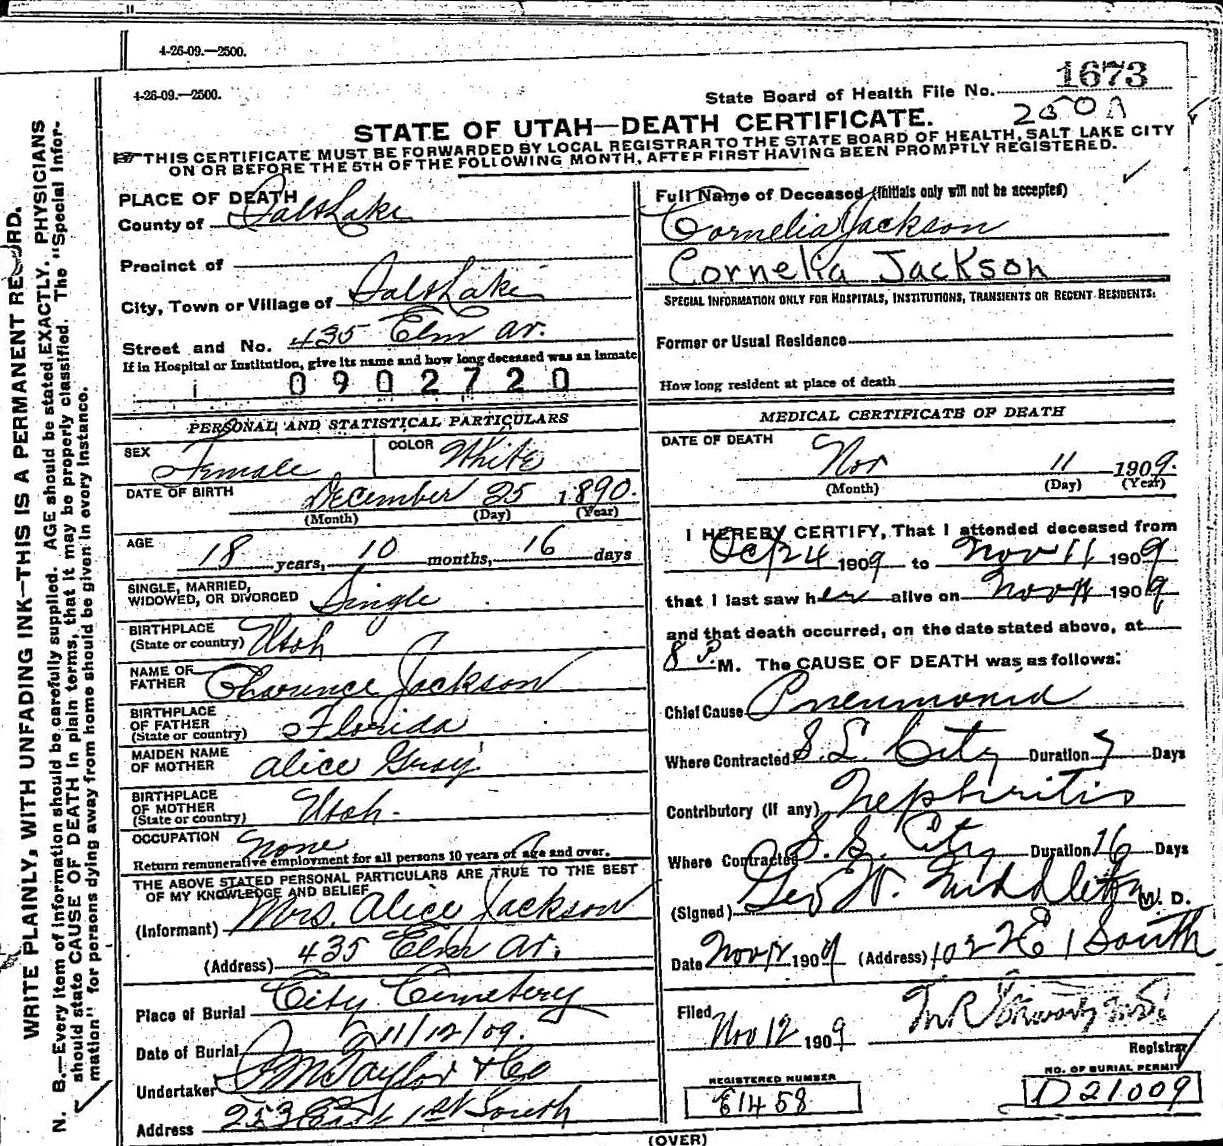 4-26-09.—2500.
4-26-09.—2500.
State Board of Health File No. 1673
STATE OF UTAH—DEATH CERTIFICATE.
THIS CERTIFICATE MUST BE FORWARDED BY LOCAL REGISTRAR TO THE STATE BOARD OF HEALTH, SALT LAKE CITY
ON OR BEFORE THE 5TH OF THE FOLLOWING MONTH, AFTER FIRST HAVING BEEN PROMPTLY REGISTERED.
WRITE PLAINLY, WITH UNFADING INK—THIS IS A PERMANENT RECORD.
N. B.—Every item of information should be carefully supplied. AGE should be stated EXACTLY. PHYSICIANS
should state CAUSE OF DEATH in plain terms, that it may be properly classified. The "Special Infor-
mation" for persons dying away from home should be given in every instance.
PLACE OF DEATH
County of Salt Lake
Precinct of
City, Town or Village of Salt Lake
Street and No. 435 Elm av.
If in Hospital or Institution, give its name and how long deceased was an inmate
0902720
PERSONAL AND STATISTICAL PARTICULARS
SEX Female COLOR White
DATE OF BIRTH December 25 1890.
(Month) (Day) (Year)
AGE 18 years, 10 months, 16 days
SINGLE, MARRIED,
WIDOWED, OR DIVORCED Single
BIRTHPLACE
(State or country) Utah
NAME OF
FATHER Clarence Jackson
BIRTHPLACE
OF FATHER
(State or country) Florida
MAIDEN NAME
OF MOTHER Alice Gray
BIRTHPLACE
OF MOTHER
(State or country) Utah.
OCCUPATION None
Return remunerative employment for all persons 10 years of age and over.
THE ABOVE STATED PERSONAL PARTICULARS ARE TRUE TO THE BEST
OF MY KNOWLEDGE AND BELIEF
(Informant) Mrs. Alice Jackson
(Address) 435 Elm av.
Place of Burial City Cemetery
Date of Burial 11/12/09.
Undertaker S M Taylor & Co
Address 253 East 1st South
Full Name of Deceased (Initials only will not be accepted)
Cornelia Jackson
Cornelia Jackson
SPECIAL INFORMATION ONLY FOR HOSPITALS, INSTITUTIONS, TRANSIENTS OR RECENT RESIDENTS:
Former or Usual Residence
How long resident at place of death
MEDICAL CERTIFICATE OF DEATH
DATE OF DEATH Nov 11 1909.
(Month) (Day) (Year)
I HEREBY CERTIFY, That I attended deceased from
Oct 24 1909 to Nov 11 1909
that I last saw her alive on Nov 11 1909
and that death occurred, on the date stated above, at
8 P. M. The CAUSE OF DEATH was as follows:
Chief Cause Pneumonia
Where Contracted S. L. City Duration 7 Days
Contributory (if any) Nephritis
Where Contracted S. L. City Duration 16 Days
(Signed) Geo W. Middleton M. D.
Date Nov 12 1909 (Address) 102 E 1 South
Filed
Nov 12 1909
Registrar
REGISTERED NUMBER
E1458
NO. OF BURIAL PERMIT
D21009
(OVER)